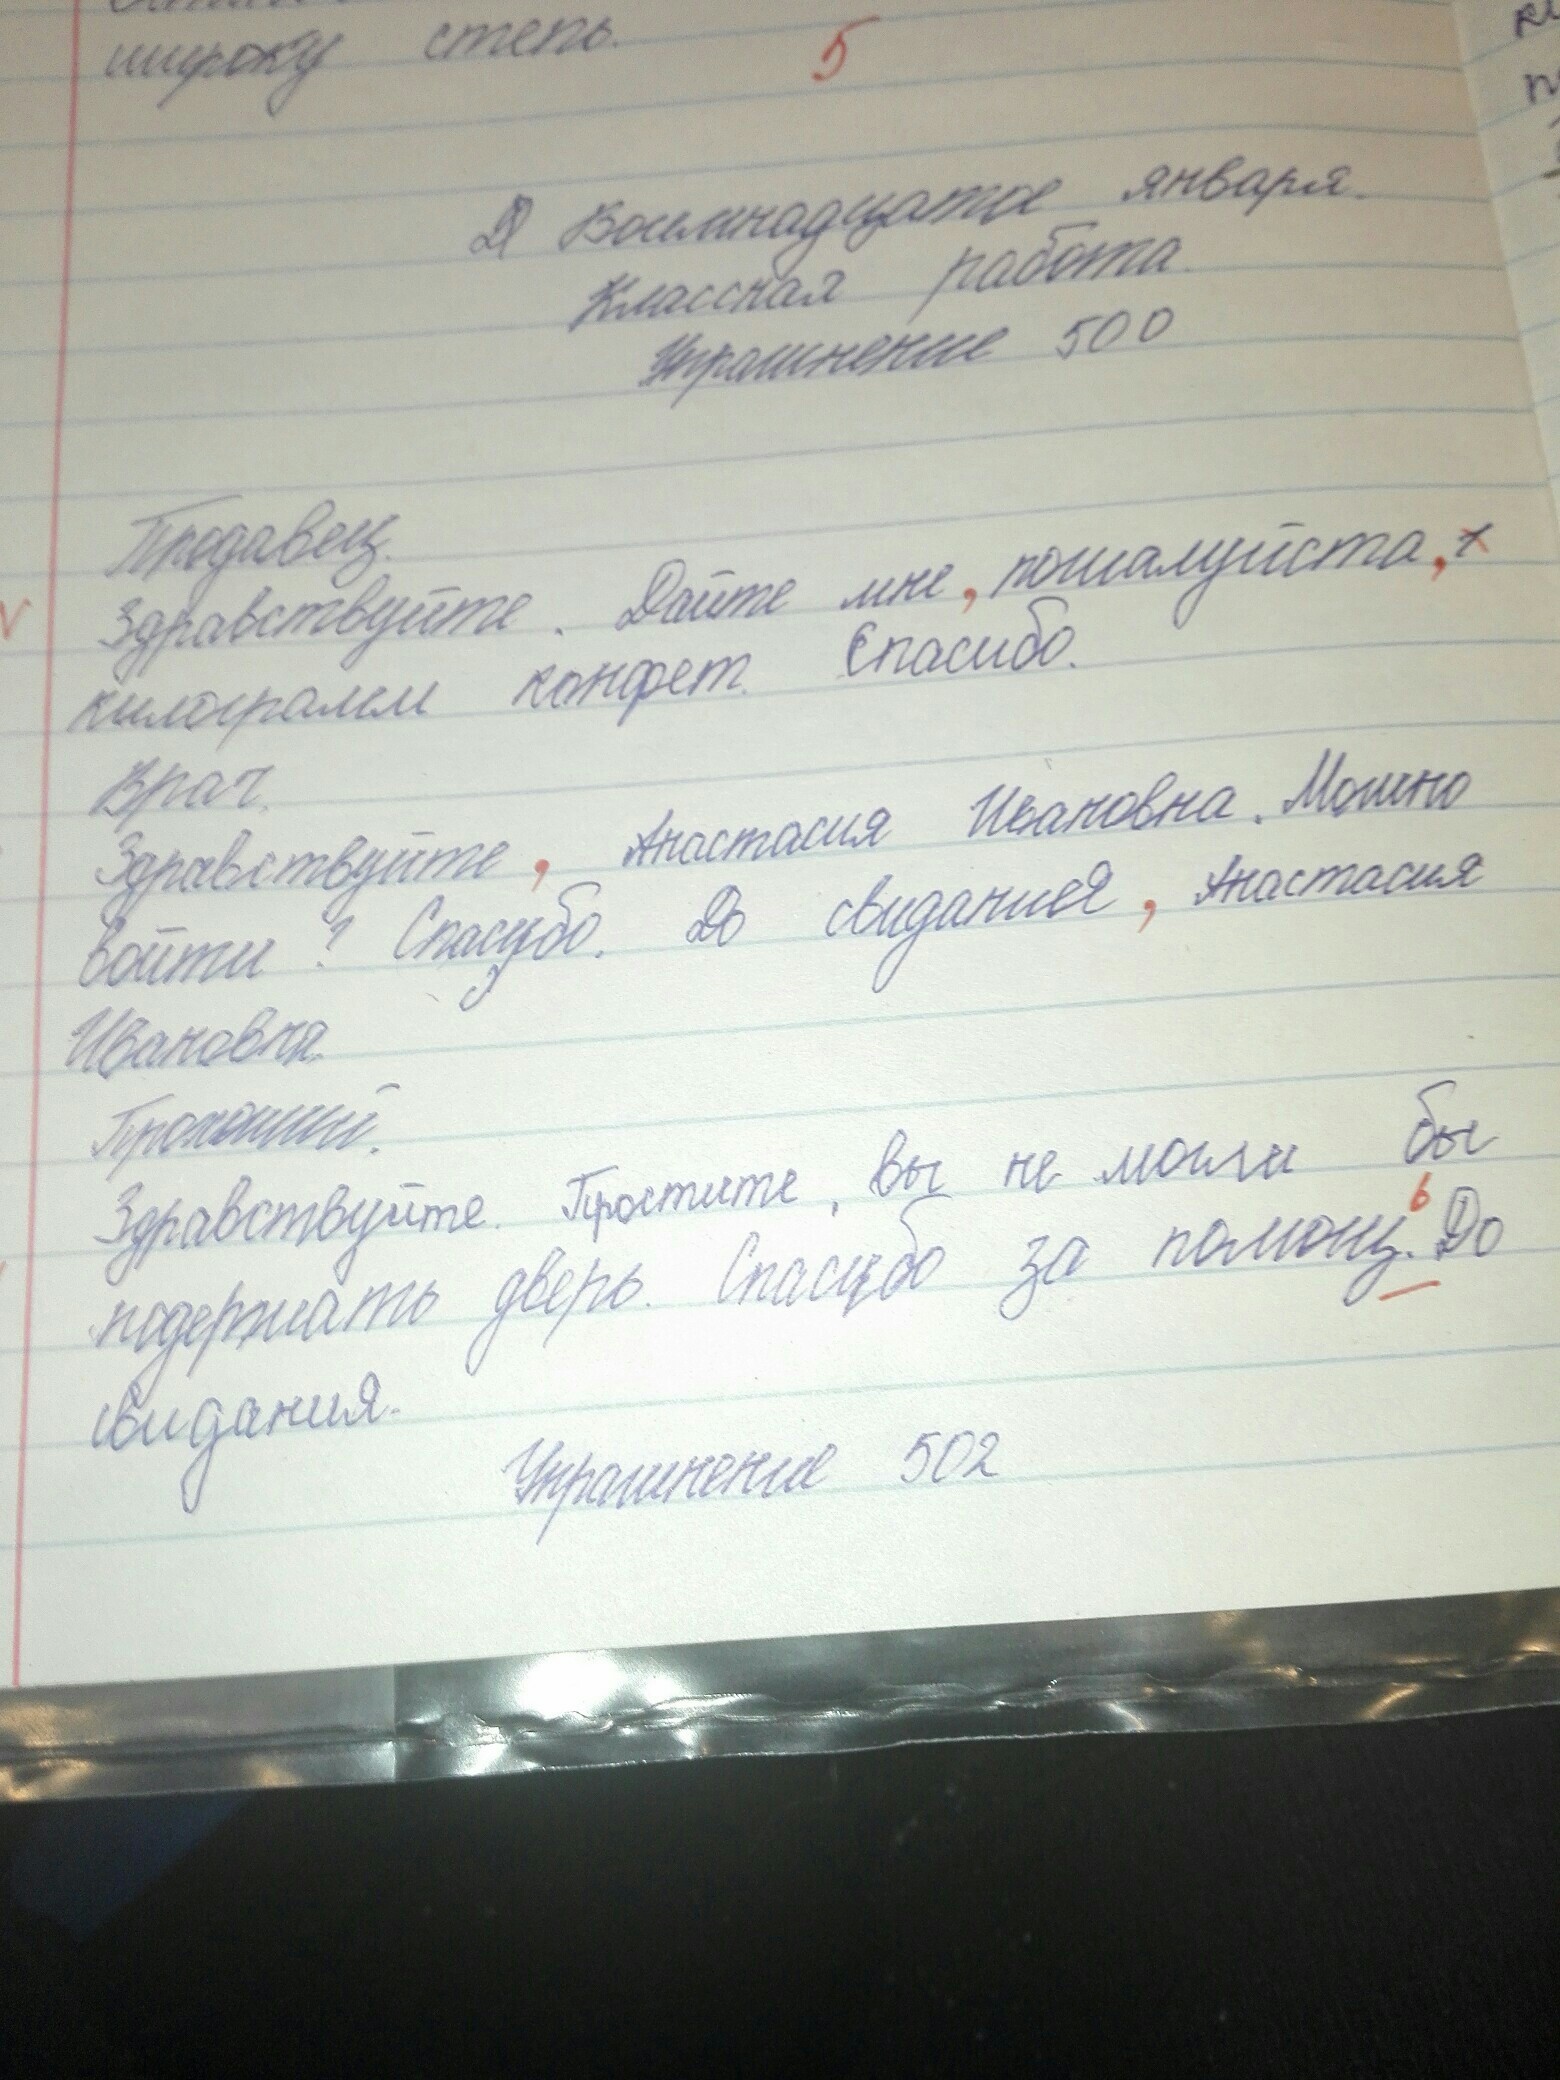 широку степь.
5
Д Восемнадцатое января.
Классная работа.
Упражнение 500
Продавец.
Здравствуйте. Дайте мне, пожалуйста, 1
килограмм конфет. Спасибо.
Врач.
Здравствуйте, Анастасия Ивановна. Можно
войти? Спасибо. До свидания, Анастасия
Ивановна.
Прохожий.
Здравствуйте. Простите, вы не могли бы
подержать дверь. Спасибо за помощь. До
свидания.
Упражнение 502